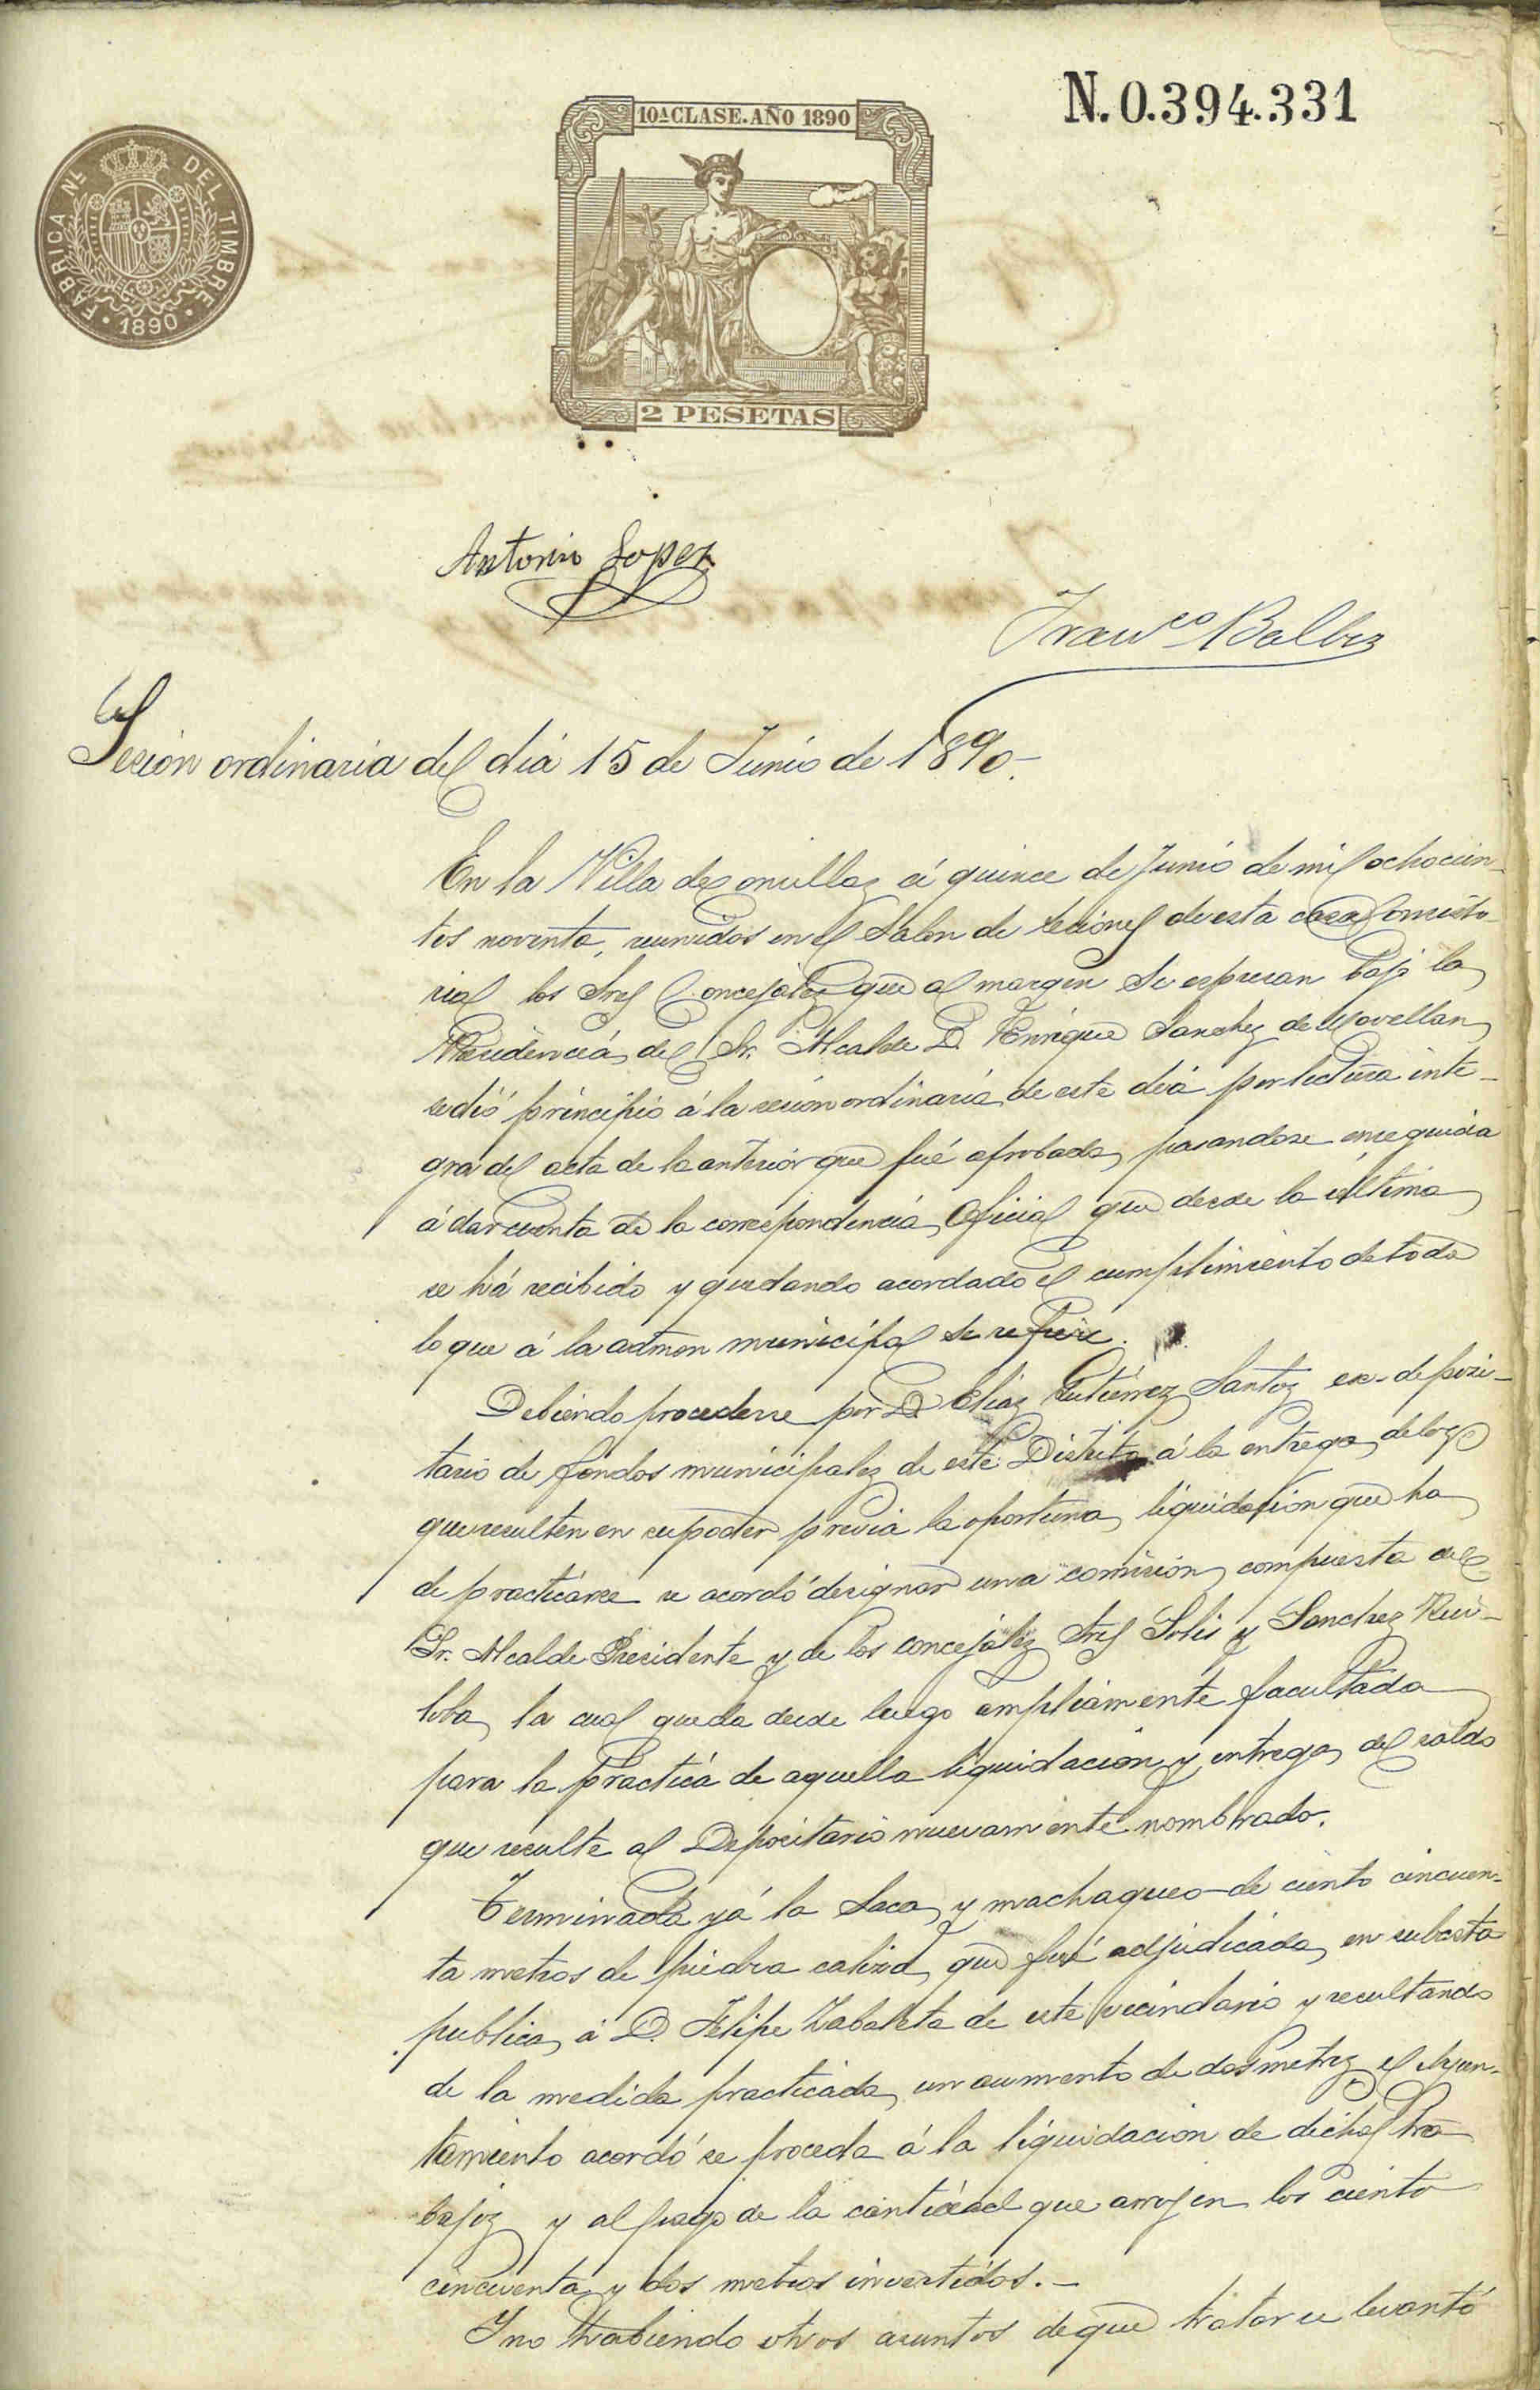 N. 0.394.331
10ª CLASE. AÑO 1890
FABRICA NL. DEL TIMBRE
1890
2 PESETAS
Antonio Lopez
Franco Balbas
Sesion ordinaria del dia 15 de Junio de 1890.
En la Villa de Comillas á quince de Junio de mil ochocien-
tos noventa, reunidos en el Salon de sesiones de esta casa Consisto-
rial los Sres Concejales que al margen se expresan bajo la
Presidencia del Sr. Alcalde D. Enrique Sanchez de Movellan
se dió principio á la sesion ordinaria de este dia por lectura inte-
gra del acta de la anterior que fué aprobada, pasandose enseguida
á dar cuenta de la correspondencia Oficial que desde la última
se há recibido y quedando acordado el cumplimiento de toda
lo que á la admon municipal se refiere.
Debiendo procederse por D. Elias Gutierrez Santos ex-deposi-
tario de fondos municipales de este Distrito á la entrega de los
que resulten en su poder previa la oportuna liquidacion que ha
de practicarse se acordó designar una comision compuesta del
Sr. Alcalde Presidente y de los concejales Sres Solis y Sanchez Rui-
loba, la cual queda desde luego ampliamente facultada
para la practica de aquella liquidacion y entrega del saldo
que resulte al Depositario nuevamente nombrado.
Terminada yá la Saca y machaqueo de ciento cincuen-
ta metros de piedra caliza que fué adjudicada en subasta
publica á D. Felipe Zabaleta de este vecindario y resultando
de la medida practicada un aumento de dos metros el Ayun-
tamiento acordó se proceda á la liquidacion de dichos tra-
bajos y al pago de la cantidad que arrojen los ciento
cincuenta y dos metros invertidos.-
Y no habiendo otros asuntos de que tratar se levantó